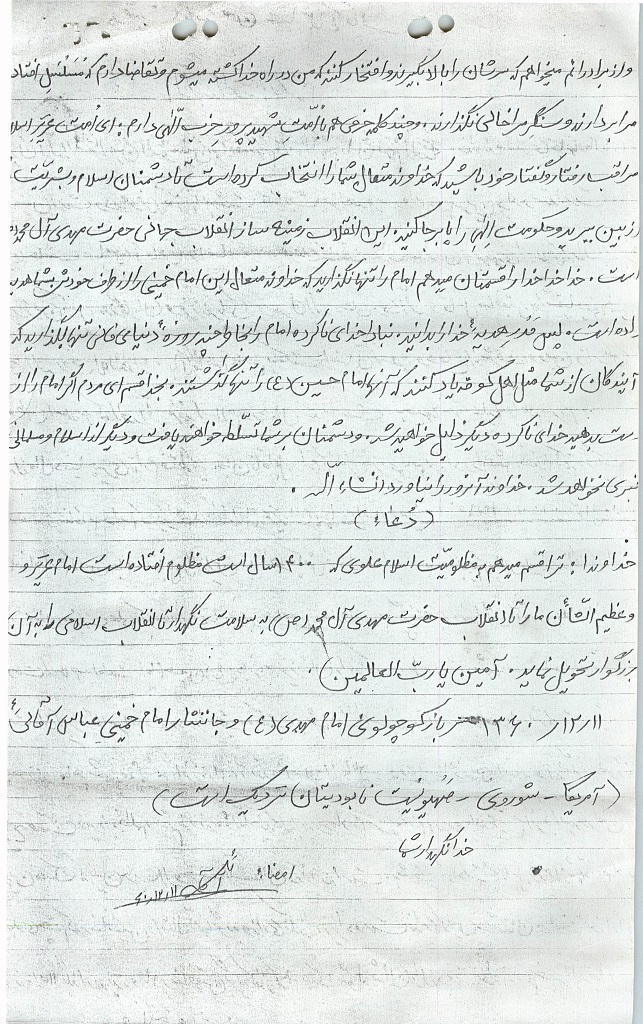 و از برادرانم میخواهم که سرشان را بالا بگیرند و افتخار کنند که من در راه خدا کشته میشوم و تقاضا دارم که مسلسل افتاده
مرا بردارند و سنگر مرا خالی نگذارند. و چند کلمه حرفی هم با اُمّتِ شهید پرور حزب الّهی دارم: ای اُمت عزیز اسلام
مراقب رفتار و گفتار خود باشید که خداوند متعال شما را انتخاب کرده است تا دشمنان اسلام و بشریّت
از بین ببرید و حکومت اِلهی را پا برجا کنید. این انقلاب زمینه ساز انقلاب جهانی حضرت مهدی آل محمد
است. خدا خدا خدا را قسمتان میدهم امام را تنها نگذارید که خداوند متعال این امام خمینی را از طرف خودش بشما هدیه
داده است. پس قَدرِ هدیهٔ خدا را بدانید. نبادا خدای ناکرده امام را بخاطر چند روزهٔ دنیای فانی تنها بگذارید که
آیندگان از شما مثل اهل کوفه یاد کنند که آنها امام حسین (ع) را تنها گذاشتند. بخدا قسم ای مردم اگر امام را از
دست بدهید خدای ناکرده دیگر ذلیل خواهید شد. و دشمنان بر شما تسلّط خواهند یافت و دیگر از اسلام و مسلمانی
خبری نخواهد شد. خداوند آنروز را نیاورد انشاء الّله.
(دُعاء)
خداوندا: ترا قسم میدهم به مظلومیّت اسلام علوی که ۱۴۰۰ سال است مظلوم افتاده است امام عزیز و
و عظیم الشّأن ما را تا انقلاب حضرت مهدی آل محمد (ص) به سلامت نگهدار تا انقلاب اسلامی را به آن
بزرگوار تحویل نماید. آمین یا ربّ العالمین)
۱۳۶۰/۱۲/۱۱ سرباز کوچولوی امام مهدی (ع) و جانثار امام خمینی عباس آقائی
(آمریکا - شوروی - صَهیونیت نابودیتان نزدیک است)
خدا نگهدار شما
امضاء ۶۰/۱۲/۱۱